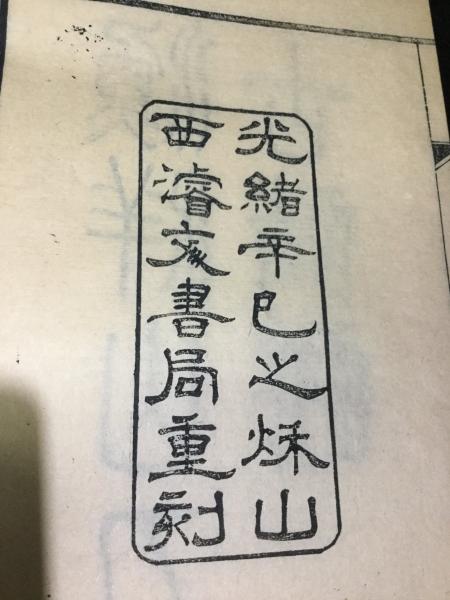 光緒辛巳之秌山
西濬文書局重刻